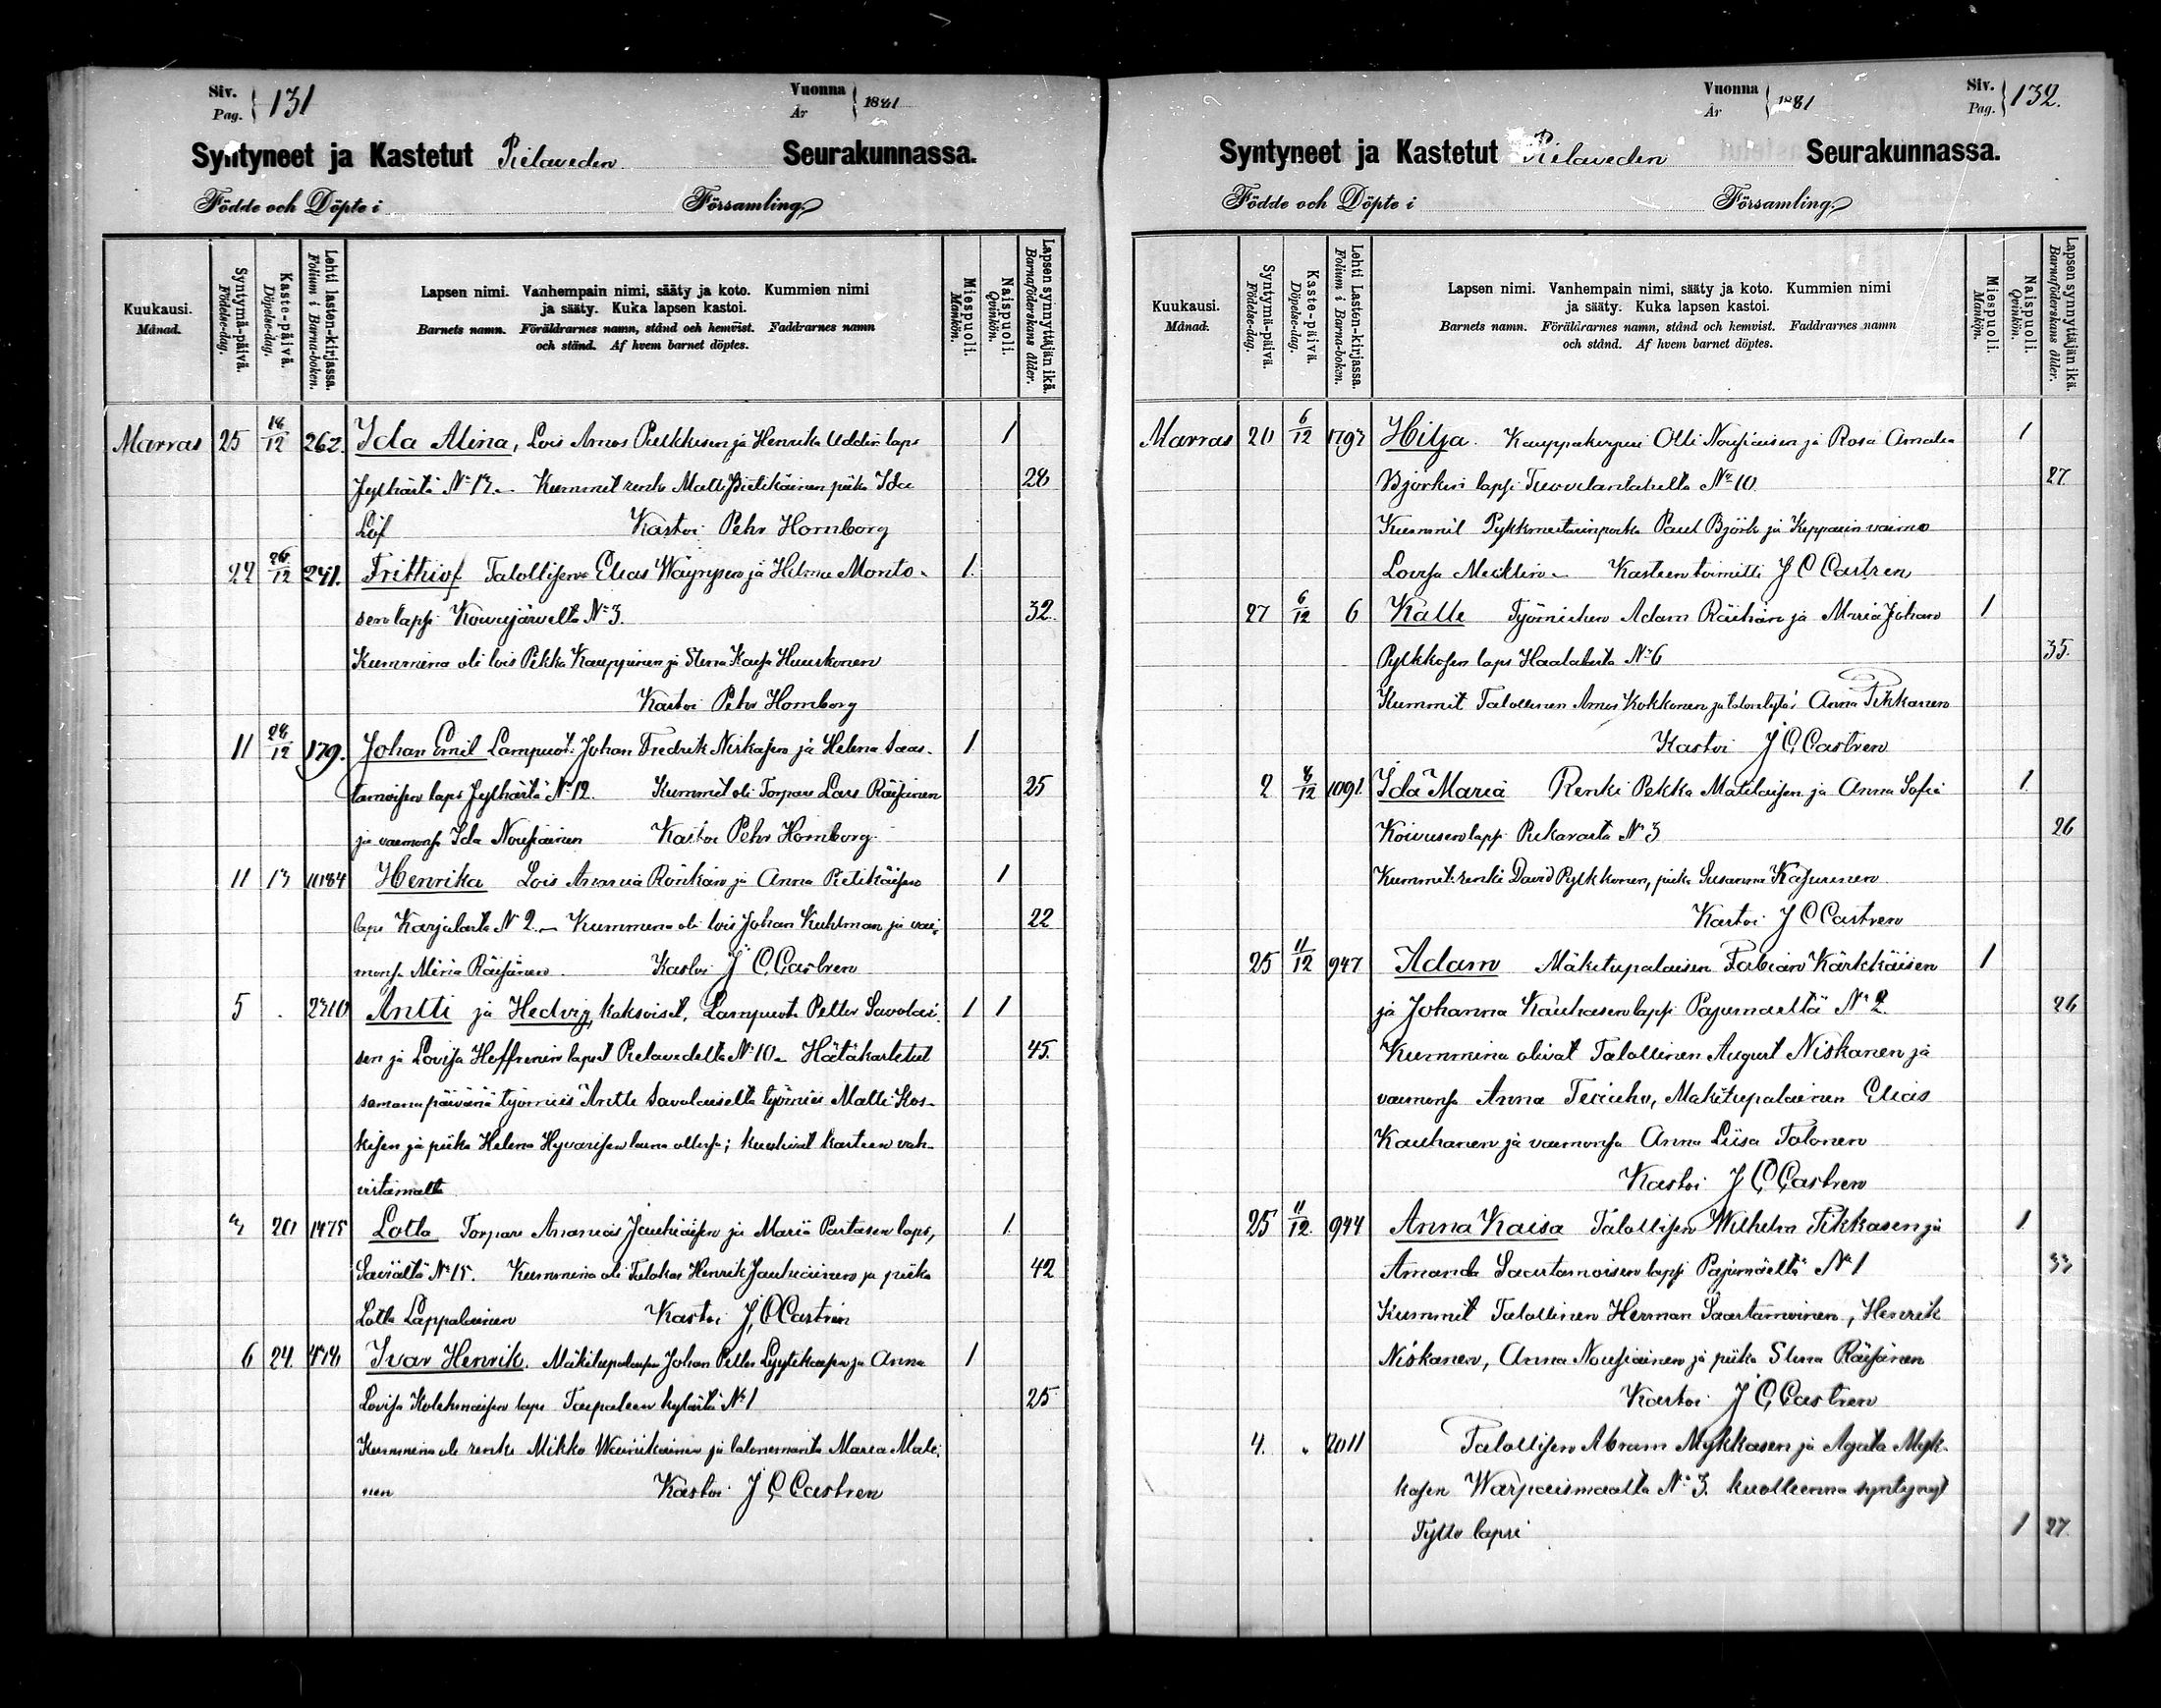 Siv.
Pag. 131
Vuonna
År 1881
Syntyneet ja Kastetut Pielaveden Seurakunnassa.
Födde och Döpte i Församling.
Kuukausi.
Månad.
Syntymä-päivä.
Födelse-dag.
Kaste-päivä.
Döpelse-dag.
Lehti lasten-kirjassa.
Folium i Barna-boken.
Lapsen nimi. Vanhempain nimi, sääty ja koto. Kummien nimi
ja sääty. Kuka lapsen kastoi.
Barnets namn. Föräldrarnes namn, stånd och hemvist. Faddrarnes namn
och stånd. Af hvem barnet döptes.
Miespuoli.
Mankön.
Naispuoli.
Qvinkön.
Lapsen synnyttäjän ikä.
Barnaföderskans ålder.
Marras 25 18/12 262. Ida Alina, Lois Amos Pulkkisen ja Henrika Uddin laps 1
Jylhästä No 13. Kummit renki Matti Pietikäinen piika Ida 28
Löf Kastoi Pehr Hornborg
22 26/12 241. Frithiof Talollisen Elias Wäyrysen ja Hilma Monto- 1.
sen lapsi Koivujärveltä No 3. 32
Kummina oli lois Pekka Kauppinen ja Stina Kaisa Huuskonen
Kastoi Pehr Hornborg
11 28/12 179. Johan Emil Lampuot. Johan Fredrik Niskasen ja Helena Saas- 1
tamoisen laps Jylhästä No 12. Kummit oli Torpari Lars Räisänen 25
ja vaimonsa Ida Nousiainen Kastoi Pehr Hornborg
11 13 1184 Henrika Lois Anania Rönkän ja Anna Pietikäisen 1
laps Karjalasta N 2. Kummina oli lois Johan Kuhlman ja vai- 22
monsa Miria Räisänen. Kastoi J C Castren
5 . 2310 Antti ja Hedvig, kaksoiset, Lampuoti Petter Savolai- 1 1
sen ja Lovisa Hoffrenin lapset Pielavedeltä No 10. Hätäkastetut 45.
samana päivänä työmies Antti Savolaiselta työmies Matti Kos-
kisen ja piika Helena Hyvärisen läsnä ollessa; kuolivat kasteen vah-
vistamatta
3 20 1475 Lotta Torpari Ananias Jauhiaisen ja Maria Partasen laps, 1.
Saviältä No 15. Kummina oli Talokas Henrik Jauhiainen ja piika 42
Lotta Lappalainen Kastoi J, C Castrén
6 24 478 Ivar Henrik. Mäkitupalaisen Johan Petter Lyytikäisen ja Anna 1
Lovisa Kolehmaisen laps Taipaleen kylästä No 1 25
Kummina oli renki Mikko Wäniskäinen ja talonemäntä Maria Mati-
nen Kastoi J C Castren
Vuonna
År 1881
Siv.
Pag. 132.
Syntyneet ja Kastetut Pielaveden Seurakunnassa.
Födde och Döpte i Församling.
Kuukausi.
Månad.
Syntymä-päivä.
Födelse-dag.
Kaste-päivä.
Döpelse-dag.
Lehti Lasten-kirjassa.
Folium i Barna-boken.
Lapsen nimi. Vanhempain nimi, sääty ja koto. Kummien nimi
ja sääty. Kuka lapsen kastoi.
Barnets namn. Föräldrarnes namn, stånd och hemvist. Faddrarnes namn
och stånd. Af hvem barnet döptes.
Miespuoli.
Mankön.
Naispuoli.
Qvinkön.
Lapsen synnyttäjän ikä.
Barnaföderskans ålder.
Marras 20 6/12 1793 Hilja. Olli Nousiaisen ja Rosa Amalia 1
Björkin lapsi Tuovilanlahelta No 10 27
Kummit Paul Björk ja Kepparin vaimo
Lovisa Mecklin. Kasteen toimitti J C Castren
27 6/12 6 Kalle Työmiehen Adam Räihän ja Maria Johan 1
Pylkkösen laps Haalakasta No 6 35.
Kummit Talollinen Amos Kokkonen ja Anna Tikkanen
Kastoi J C Castren
2 8/12 1091. Ida Maria Renki Pekka Matilaisen ja Anna Sofia 1.
Koivusen lapsi No 3 26
Kummit. renki David Pylkkonen, piika Susanna Kasurinen
Kastoi J C Castren
25 11/12 947 Adam Mäkitupalaisen Fabian Kärkkäisen 1
ja Johanna Kauhasen lapsi Pajumäeltä No 2. 26
Kummina olivat Talollinen August Niskanen ja
vaimonsa Anna, Mäkitupalainen Elias
Kauhanen ja vaimonsa Anna Liisa Tolonen
Kastoi J C Castren
25 11/12. 944 Anna Kaisa Talollisen Wilhelm Tikkasen ja 1.
Amanda Saastamoisen lapsi Pajumäeltä No 1 33
Kummit Talollinen Herman Saastamoinen, Henrik
Niskanen, Anna Nousiainen ja piika Stina Räisänen
Kastoi J C Castren
4. " 2011 Talollisen Abram Mykkäsen ja Agata Myk-
käsen Warpaismaalta No 3. kuolleena syntynyt
Tyttö lapsi 1 27